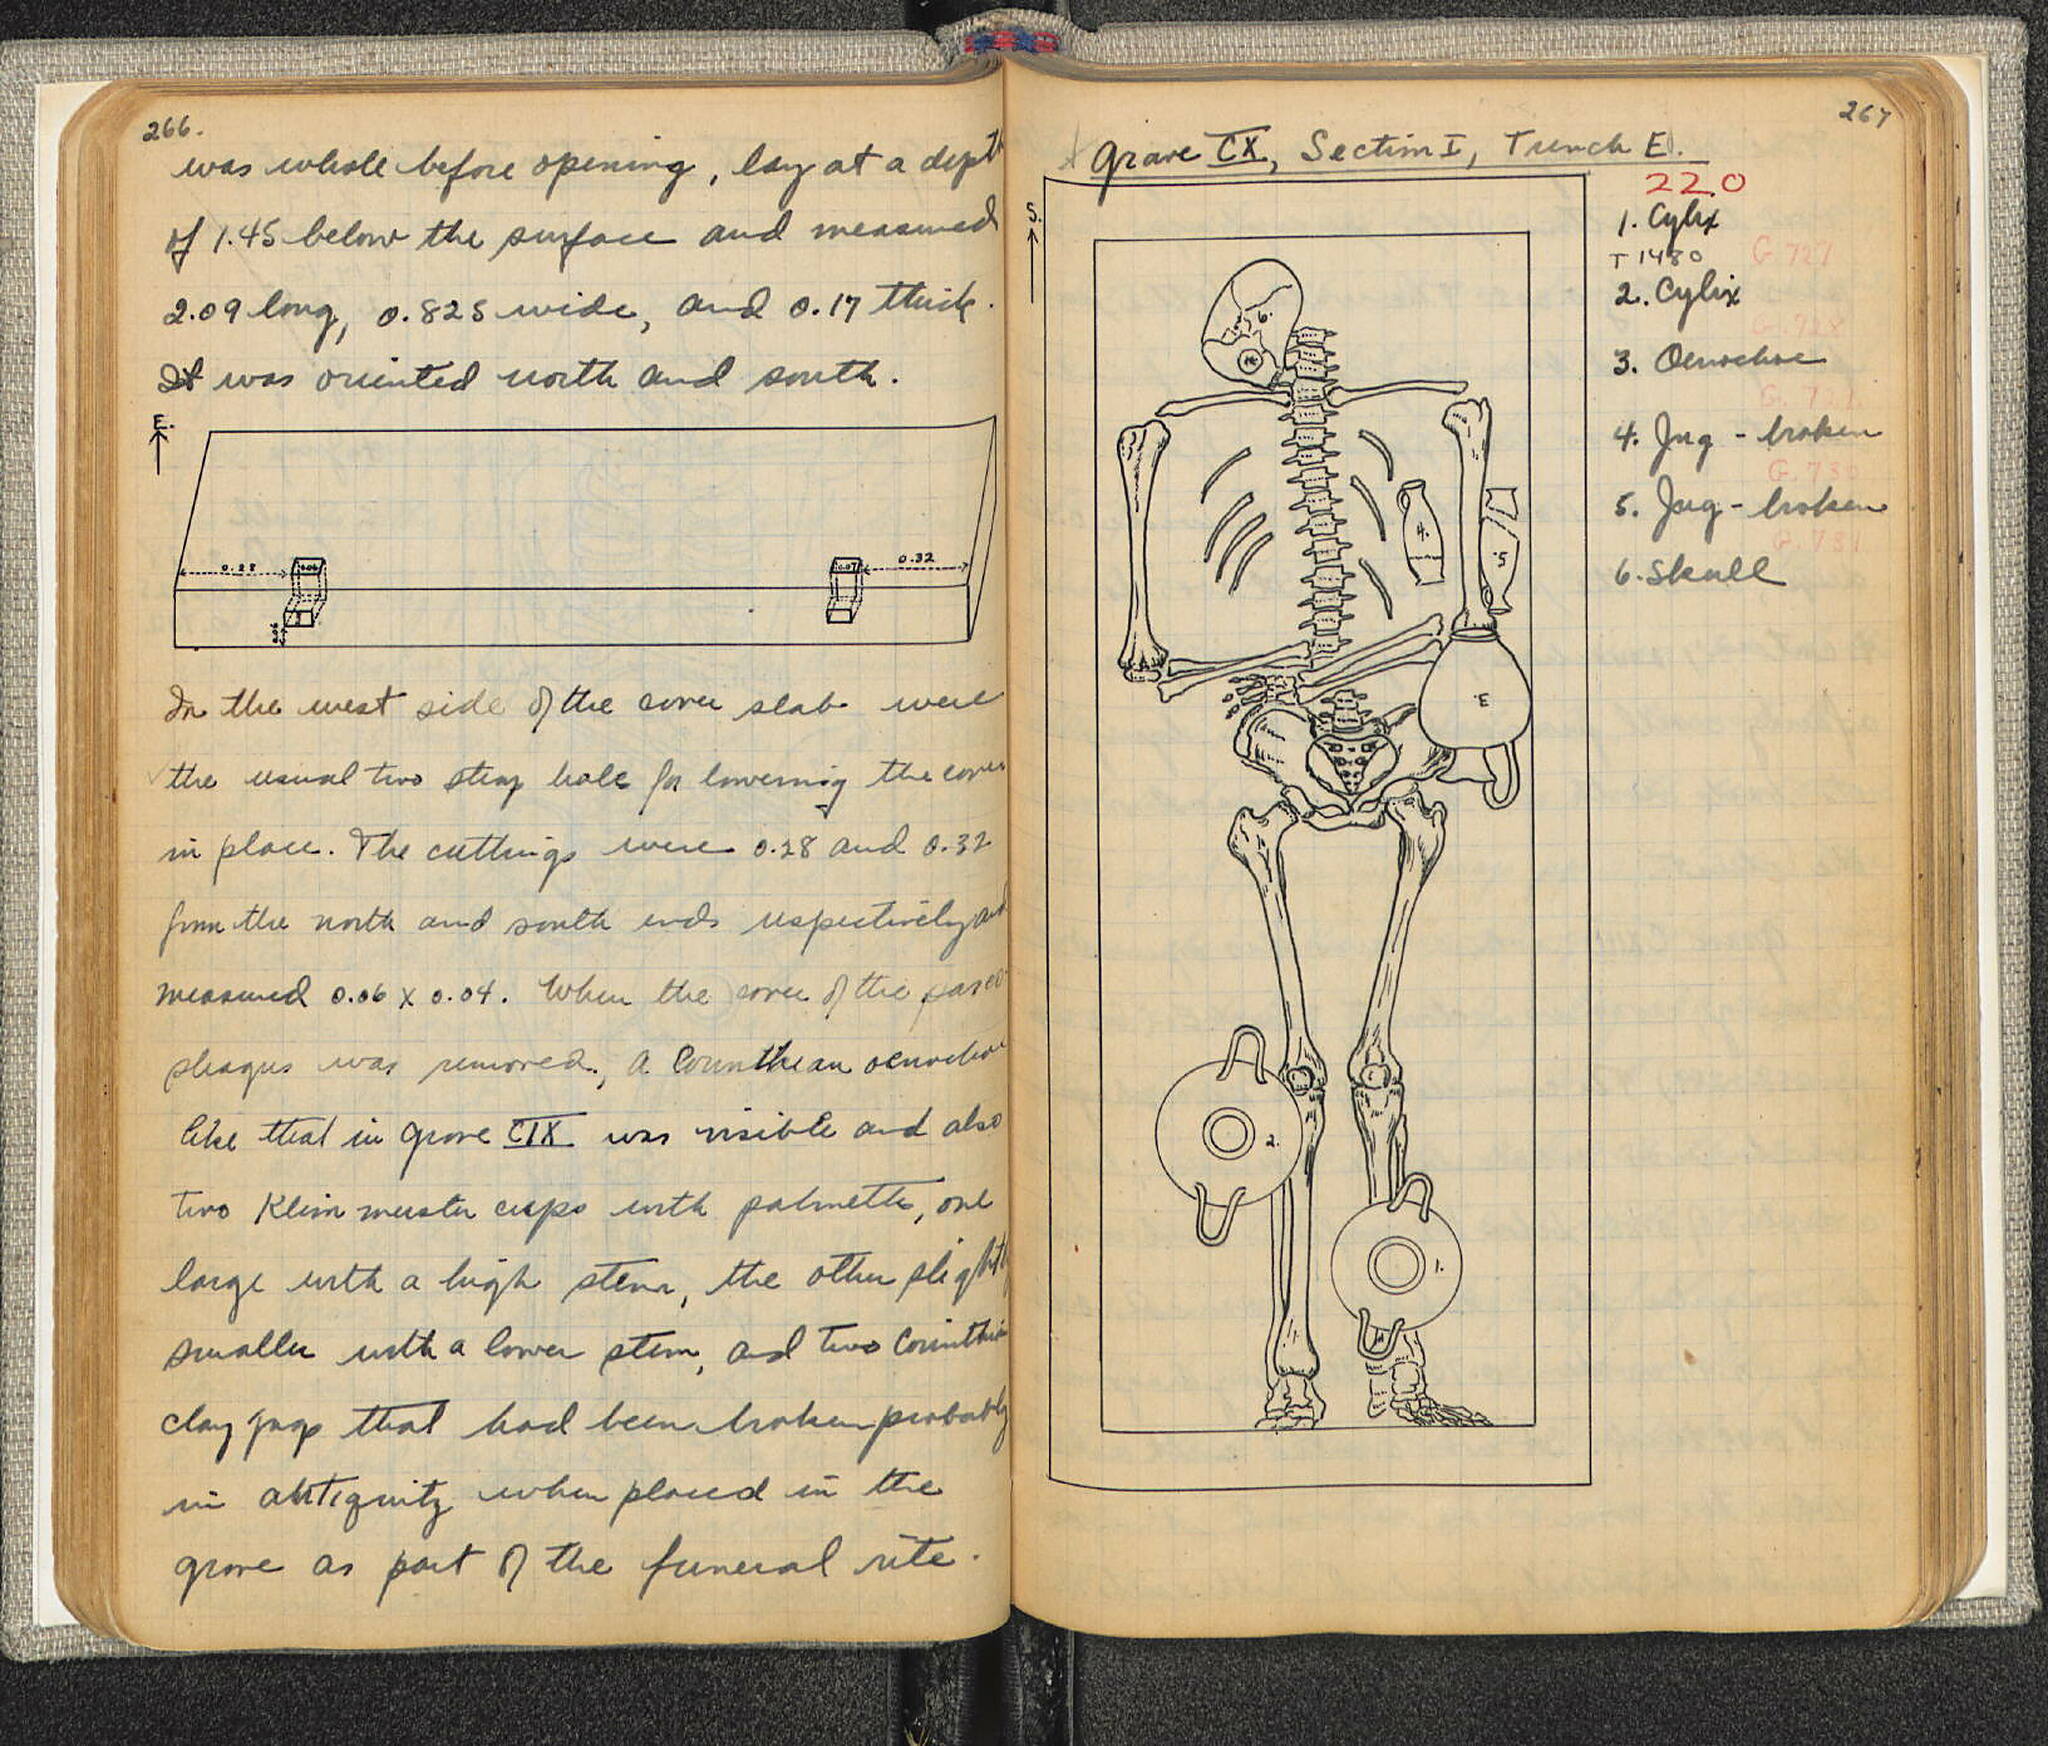 266.
was whole before opening, lay at a depth
of 1.45 below the surface and measured
2.09 long, 0.825 wide, and 0.17 thick.
It was oriented north and south.
E.
0.28
0.06
0.07
0.32
In the west side of the cover slab were
the usual two strap hole for lowering the cover
in place. The cuttings were 0.28 and 0.32
from the north and south ends respectively and
measured 0.06 x 0.04. When the cover of the sarco
phagus was removed, a Corinthian oenochoe
like that in grave CIX was visible and also
two Klein meister cups with palmette, one
large with a high stem, the other slightly
smaller with a lower stem, and two Corinthian
clay jugs that had been broken probably
in antiquity when placed in the
grave as part of the funeral rite.
267
Grave CX, Section I, Trench E.
220
S.
1. Cylix
T 1480 G. 727
2. Cylix
G. 728
3. Oenochoe
G. 729
4. Jug - broken
G. 730
5. Jug - broken
G. 731
6. Skull
6.
4.
5.
3.
2.
1.